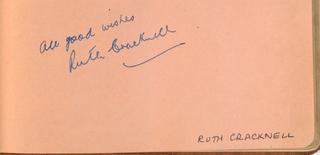 All good wishes
Ruth Cracknell
RUTH CRACKNELL